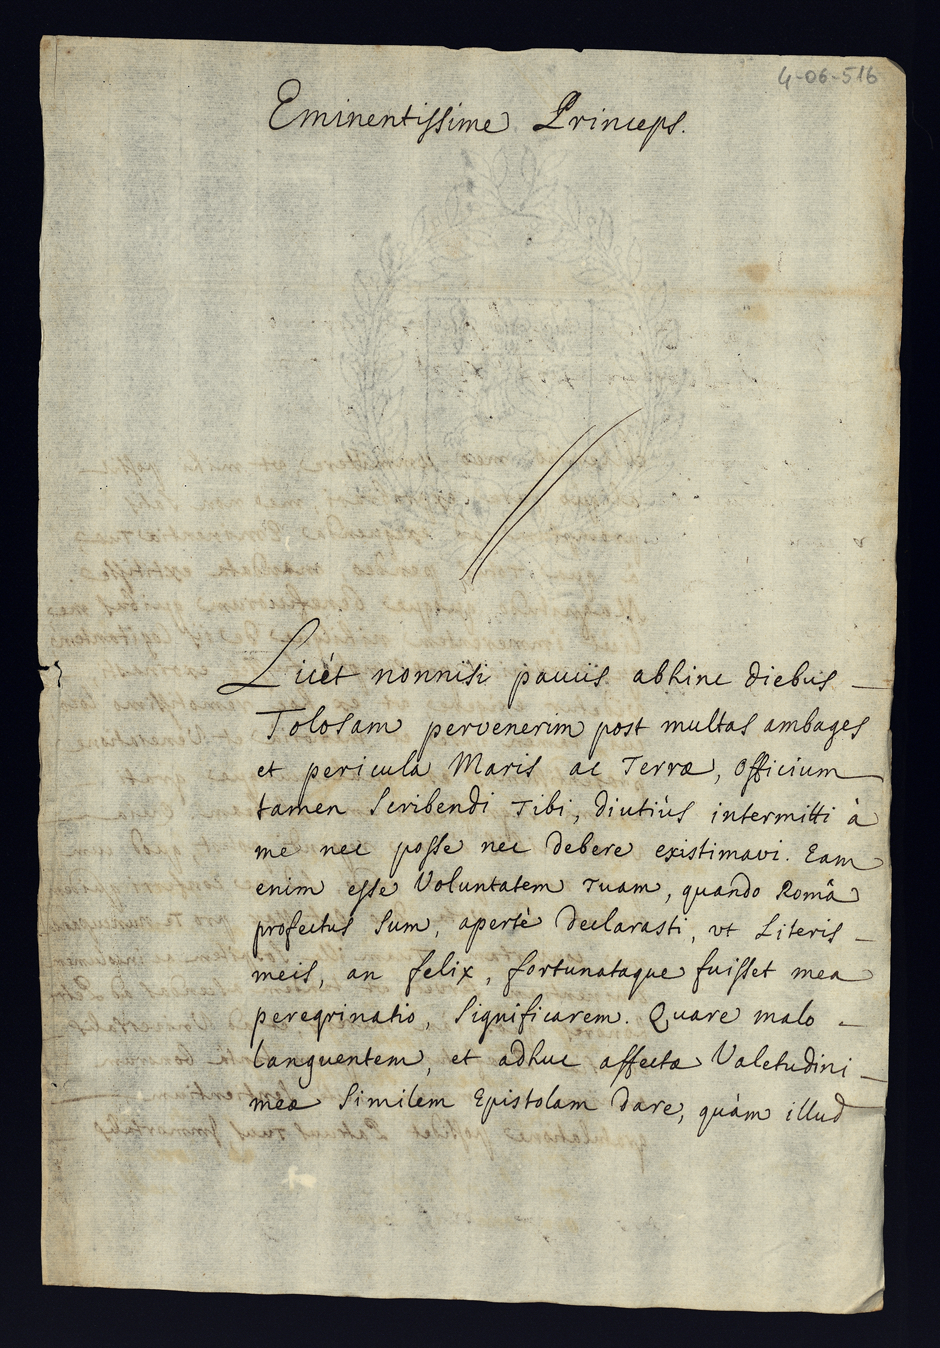 4-06-516
Eminentissime Princeps.
Licèt nonnisi paucis abhinc diebus
Tolosam pervenerim post multas ambages
et pericula Maris ac Terræ, officium
tamen Scribendi Tibi, diutiùs intermitti à
me nec posse nec debere existimavi. Eam
enim esse Voluntatem Tuam, quando Româ
profectus Sum, apertè declarasti, vt Literis
meis, an felix, fortunataque fuisset mea
peregrinatio, Significarem. Quare malo
languentem, et adhuc affectæ Valetudini
meæ Similem Epistolam dare, quàm illud